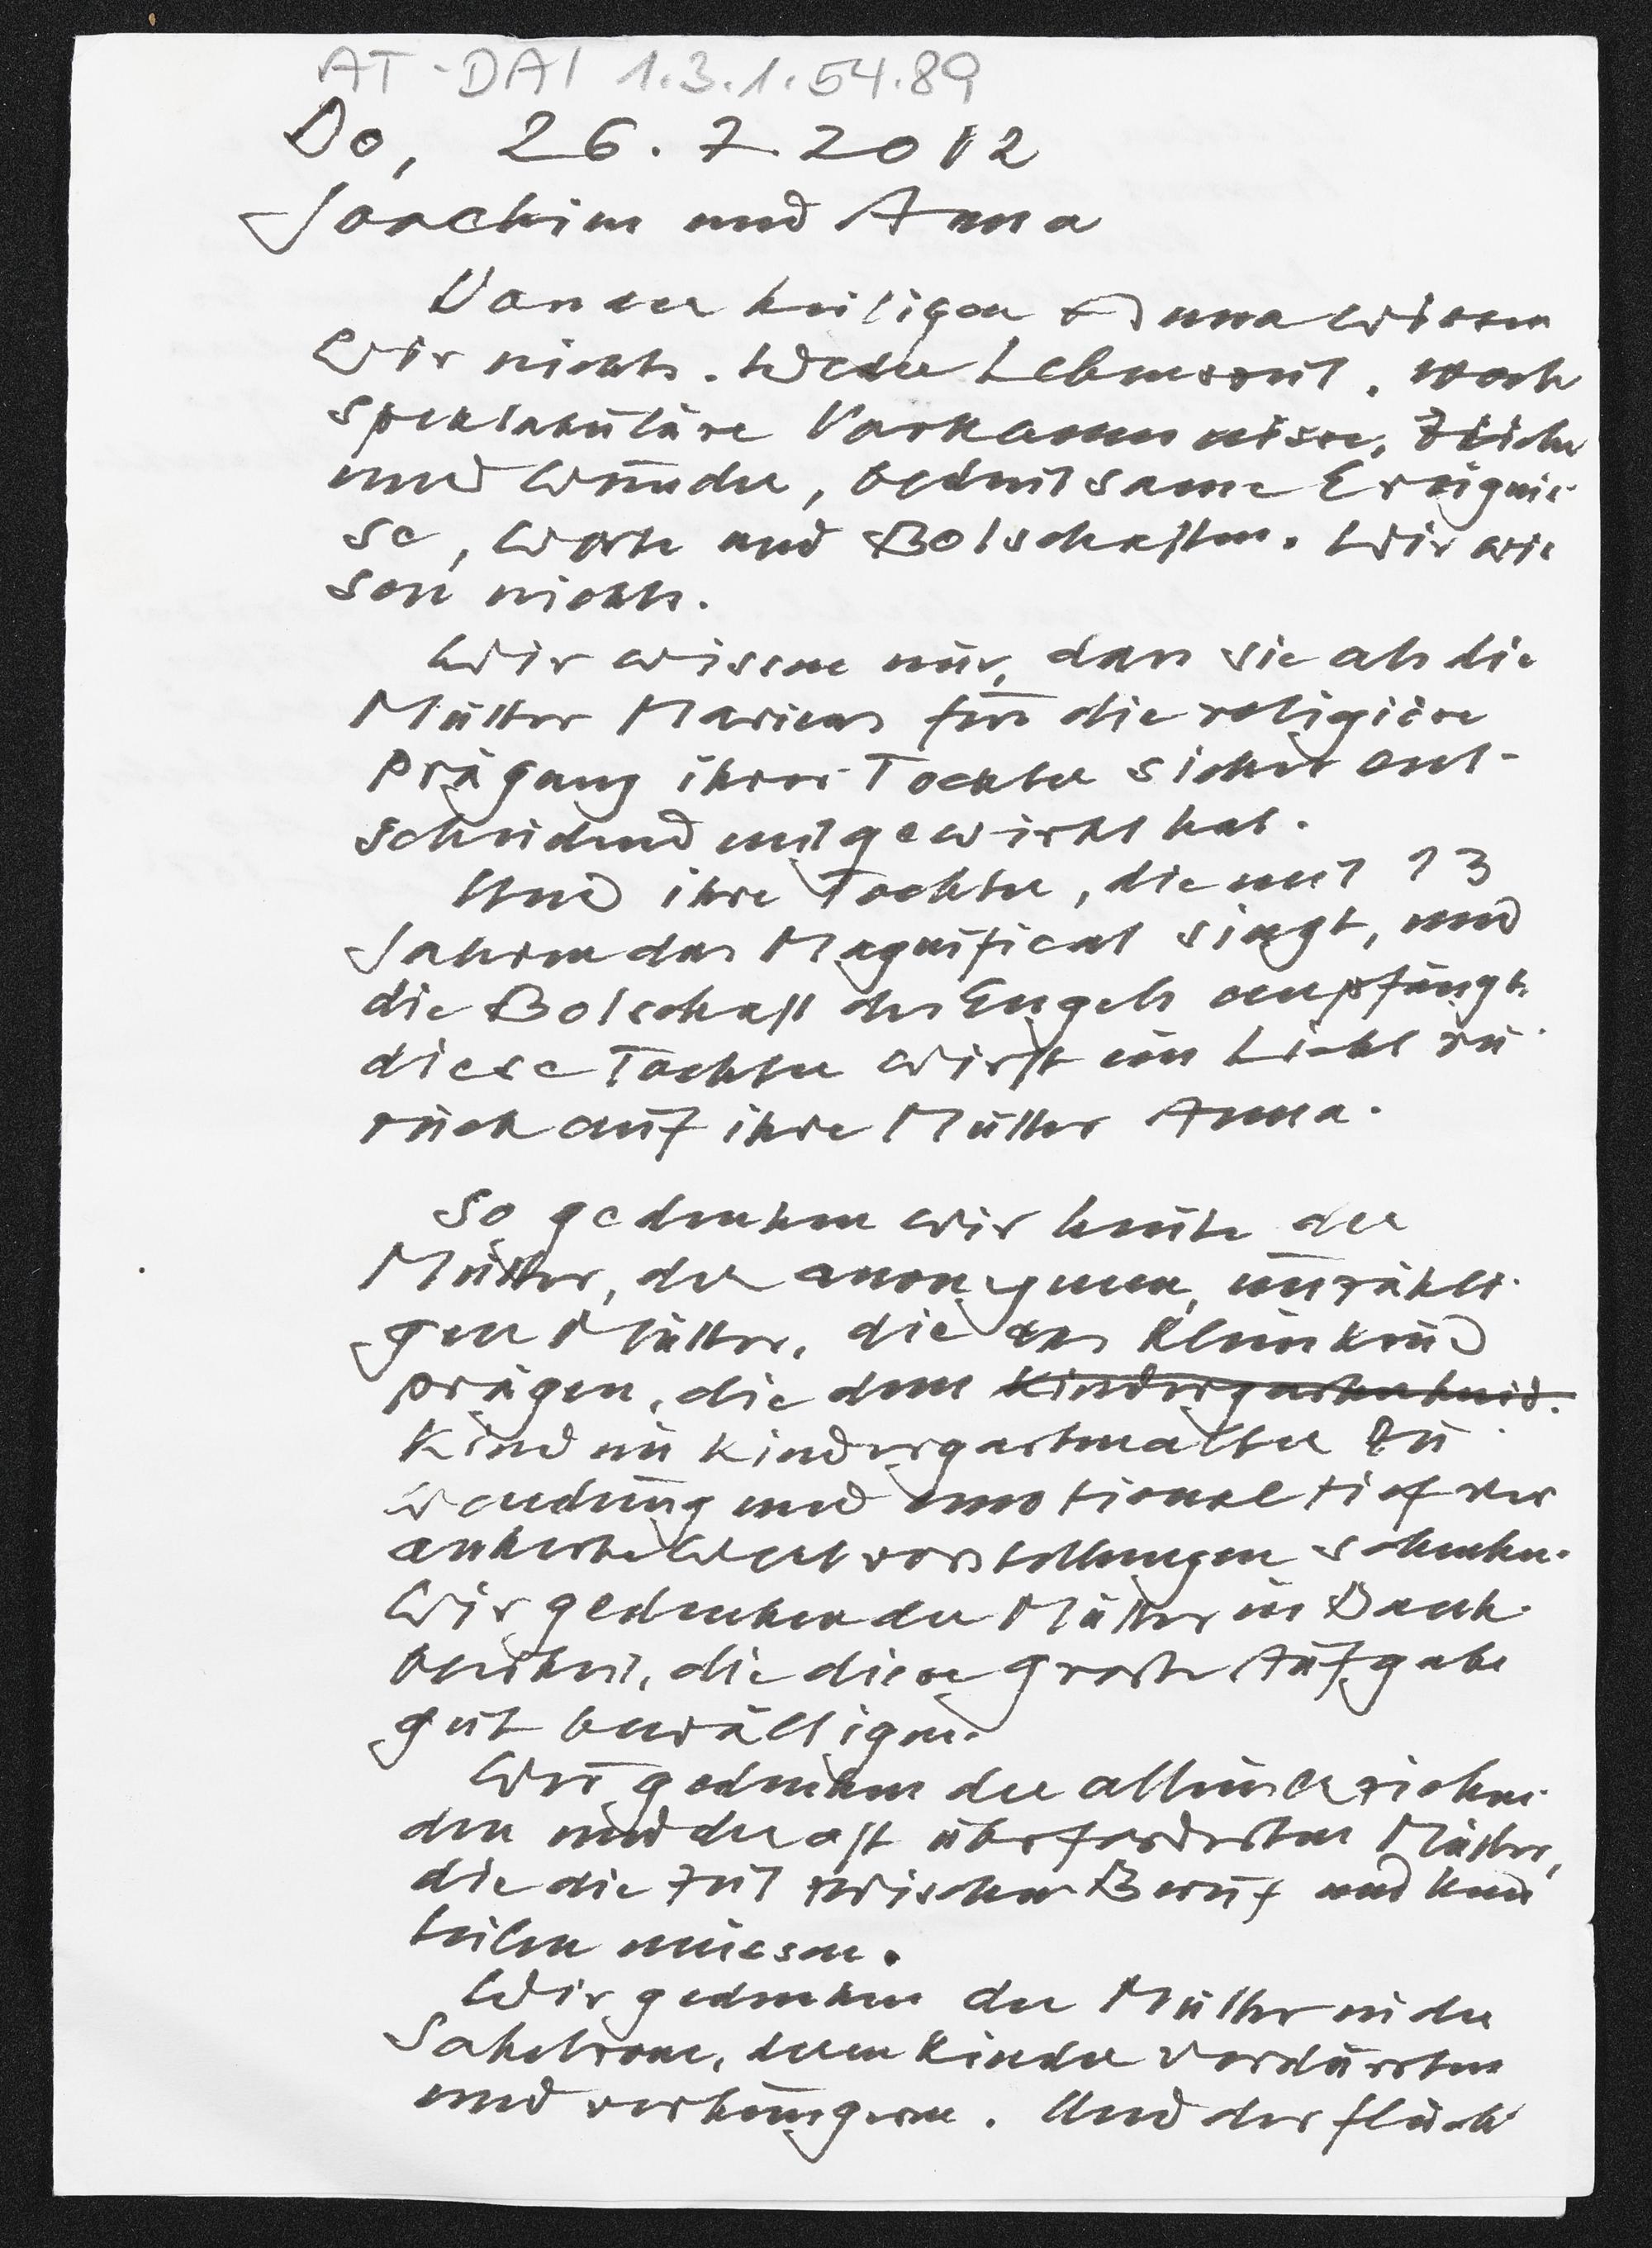 AT-DAI 1.3.1.54.89
Do, 26.7.2012
Joachim und Anna
Von der heiligen Anna wissen
wir nichts. Weder Lebenszeit, noch
spektakuläre Vorkommnisse, Zeichen
und Wunder, bedeutsame Ereignis-
se, Worte und Botschaften. Wir wis
sen nichts.
Wir wissen nur, dass sie als die
Mutter Mariens für die religiöse
Prägung ihrer Tochter sicher ent-
scheidend mitgewirkt hat.
Und ihre Tochter, die mit 13
Jahren das Magnificat singt, und
die Botschaft des Engels empfängt,
diese Tochter wirft ein Licht zu-
rück auf ihre Mutter Anna.
So gedenken wir heute der
Mütter, der anonymen, unzähli-
gen Mütter, die das Kleinkind
prägen, die dem Kindergartenkind.
Kind im Kindergartenalter Zu-
wendung und emotional tief ver
ankerte Wertvorstellungen schenken.
Wir gedenken der Mütter in Dank-
barkeit, die diese grosse Aufgabe
gut bewältigen.
Wir gedenken der alleinerziehen-
den und der oft überforderten Mütter,
die die Zeit zwischen Beruf und Kind
teilen müssen.
Wir gedenken der Mütter in der
Sahelzone, deren Kinder verdursten
und verhungern. Und der flücht-